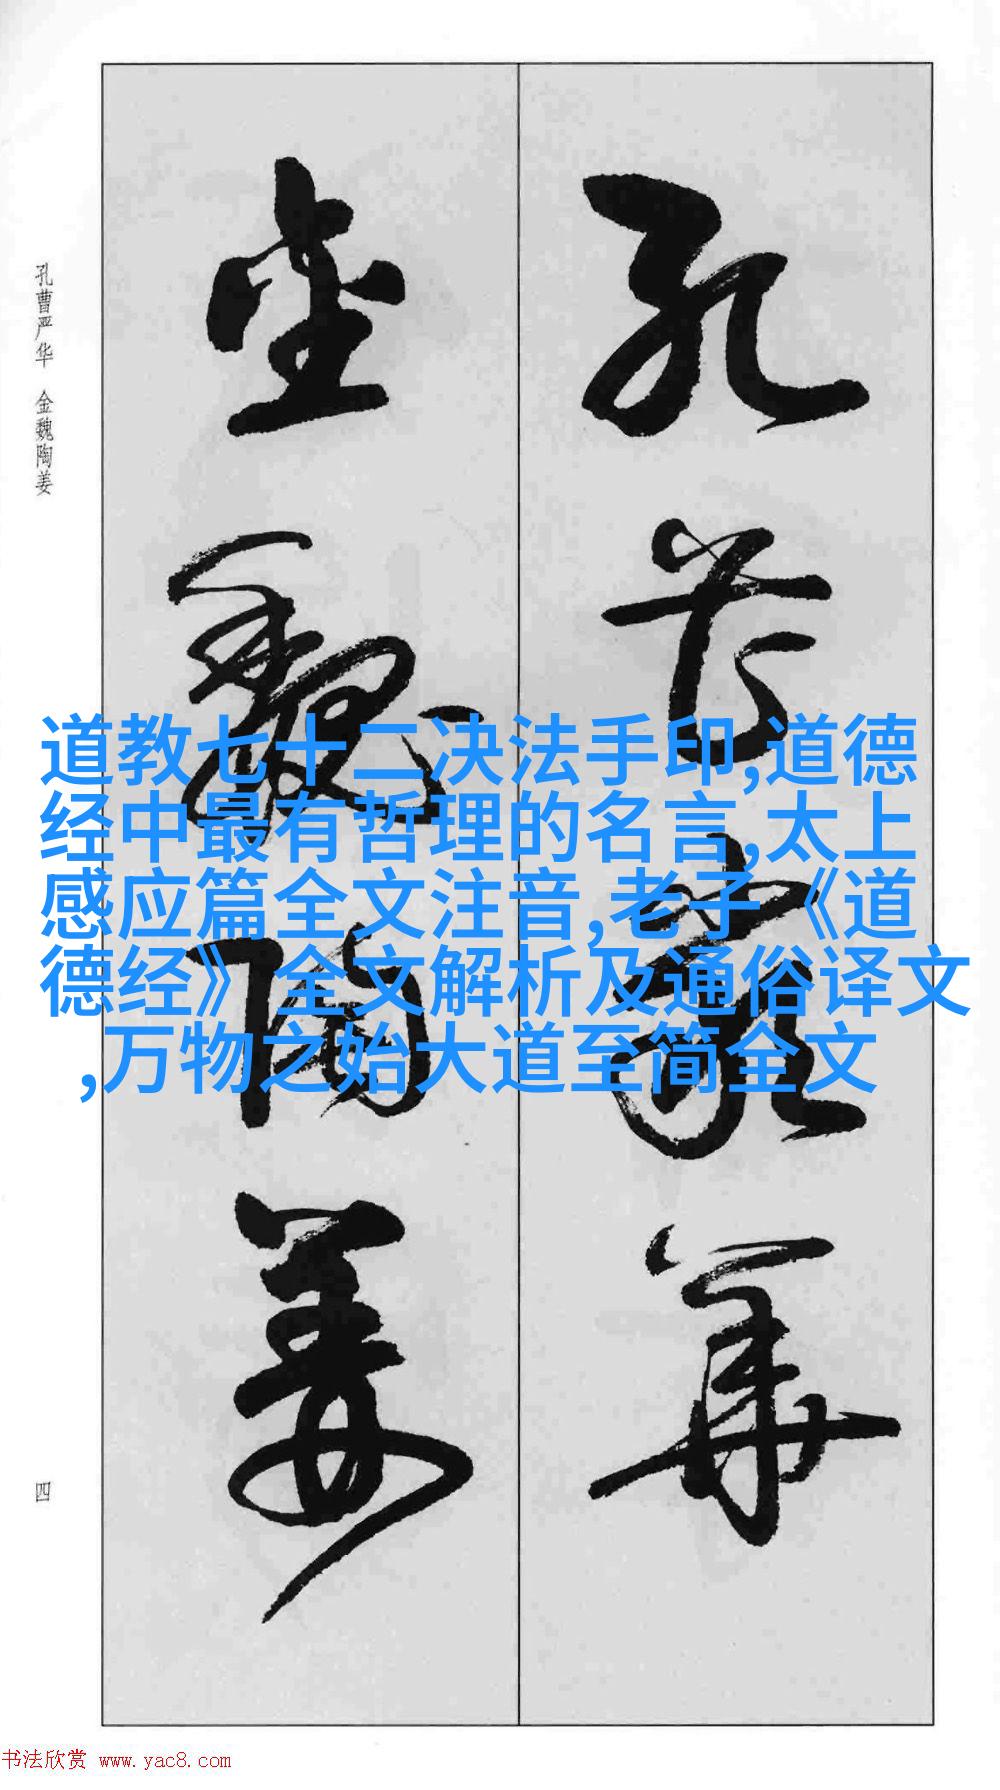 孔曹严华 金魏陶姜
孔曹嚴華
金魏陶姜
道教七十二决法手印,道德
经中最有哲理的名言,太上
感应篇全文注音,老子《道
德经》全文解析及通俗译文
,万物之始大道至简全文
四
书法欣赏 www.yac8.com